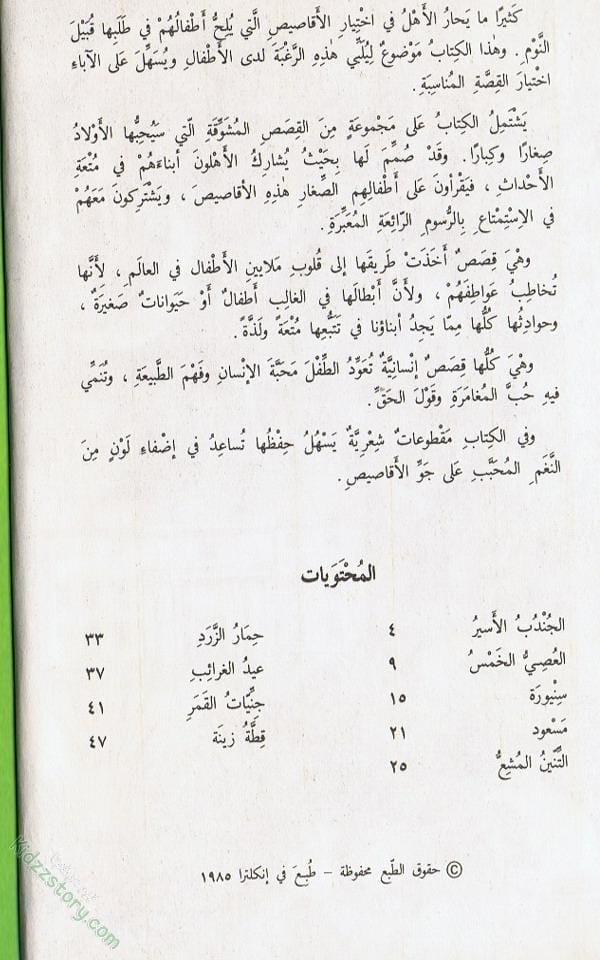 كَثيرًا ما يَحارُ الأَهْلُ في اخْتِيارِ الأَقاصيصِ الَّتي يُلِحُّ أَطْفالُهُمْ في طَلَبِها قُبَيْلَ
النَّوْمِ . وهٰذا الكِتابُ مَوْضوعٌ لِيُلَبِّيَ هٰذِهِ الرَّغْبَةَ لدى الأَطْفالِ ويُسَهِّلَ عَلى الآباءِ
اخْتِيارَ القِصَّةِ المُناسِبَةِ .
يَشْتَمِلُ الكِتابُ عَلى مَجْموعَةٍ مِنَ القِصَصِ المُشَوِّقَةِ الّتي سَيُحِبُّها الأَوْلادُ
صِغارًا وكِبارًا . وقَدْ صُمِّمَ لَها بِحَيْثُ يُشارِكُ الأَهْلونَ أبناءَهُمْ في مُتْعَةِ
الأَحْداثِ ، فيَقْرأونَ عَلى أَطْفالِهِم الصِّغارِ هذِهِ الأقاصيصَ ، ويَشْتَرِكونَ مَعَهُمْ
في الاِسْتِمْتاعِ بِالرُّسومِ الرّائِعَةِ المُعَبِّرَةِ .
وهْيَ قِصَصٌ أَخَذَتْ طَريقَها إلى قُلوبِ مَلايينِ الأَطْفالِ في العالَمِ ، لأَنَّها
تُخاطِبُ عَواطِفَهُمْ ، ولأَنَّ أَبْطالَها في الغالِبِ أَطفالٌ أَوْ حَيَواناتٌ صَغيرَةٌ ،
وحوادِثُها كُلُّها مِمّا يَجدُ أبناؤنا في تَتَبُّعِها مُتْعَةً ولَذَّةً .
وهْيَ كُلُّها قِصَصٌ إنْسانِيَّةٌ تُعَوِّدُ الطِّفْلَ مَحَبَّةَ الإنْسانِ وفَهْمَ الطَّبيعَةِ ، وتُنَمِّي
فيهِ حُبَّ المُغامَرَةِ وقَوْلَ الحَقِّ .
وفي الكِتابِ مَقْطوعاتٌ شِعْرِيَّةٌ يَسْهُلُ حِفْظُها تُساعِدُ في إضْفاءِ لَوْنٍ مِنَ
النَّغَمِ المُحَبَّبِ عَلى جَوِّ الأَقاصيصِ .
المُحْتَوَيات
الجُنْدُبُ الأَسيرُ ٤
العُصِيُّ الخَمْسُ ٩
سِنْيورَة ١٥
مَسْعود ٢١
التِّنّينُ المُشِعُّ ٢٥
حِمَارُ الزَّرَدِ ٣٣
عيدُ الغرائِبِ ٣٧
جِنِّيّاتُ القَمَرِ ٤١
قِطَّةُ زينَة ٤٧
© حقوق الطّبع محفوظة - طُبِعَ في إنكلترا ١٩٨٥
Kidzzstory.com